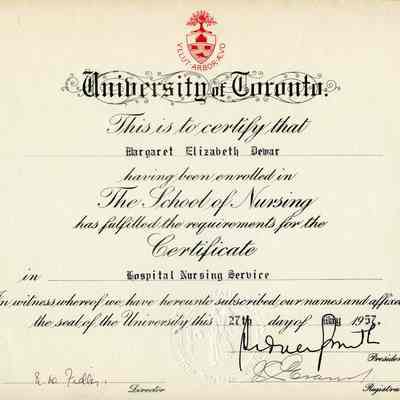 VELUT ARBOR ÆVO
University of Toronto.
This is to certify that
Margaret Elizabeth Dewar
having been enrolled in
The School of Nursing
has fulfilled the requirements for the
Certificate
in Hospital Nursing Service
In witness whereof we have hereunto subscribed our names and affixed
the seal of the University this 27th day of May 1957.
Sidney Smith
President
Director
Registrar